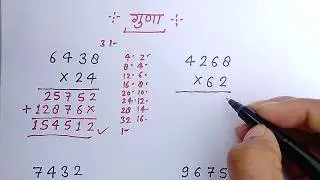 -:- गुणा -:-
3 1-
6438
× 24
25752
+ 12876×
154512 ✓
4- 2-
8- 4-
12- 6-
16- 8-
20- 10-
24- 12-
28 14-
32 16-
1-
4268
×62
7432
9675